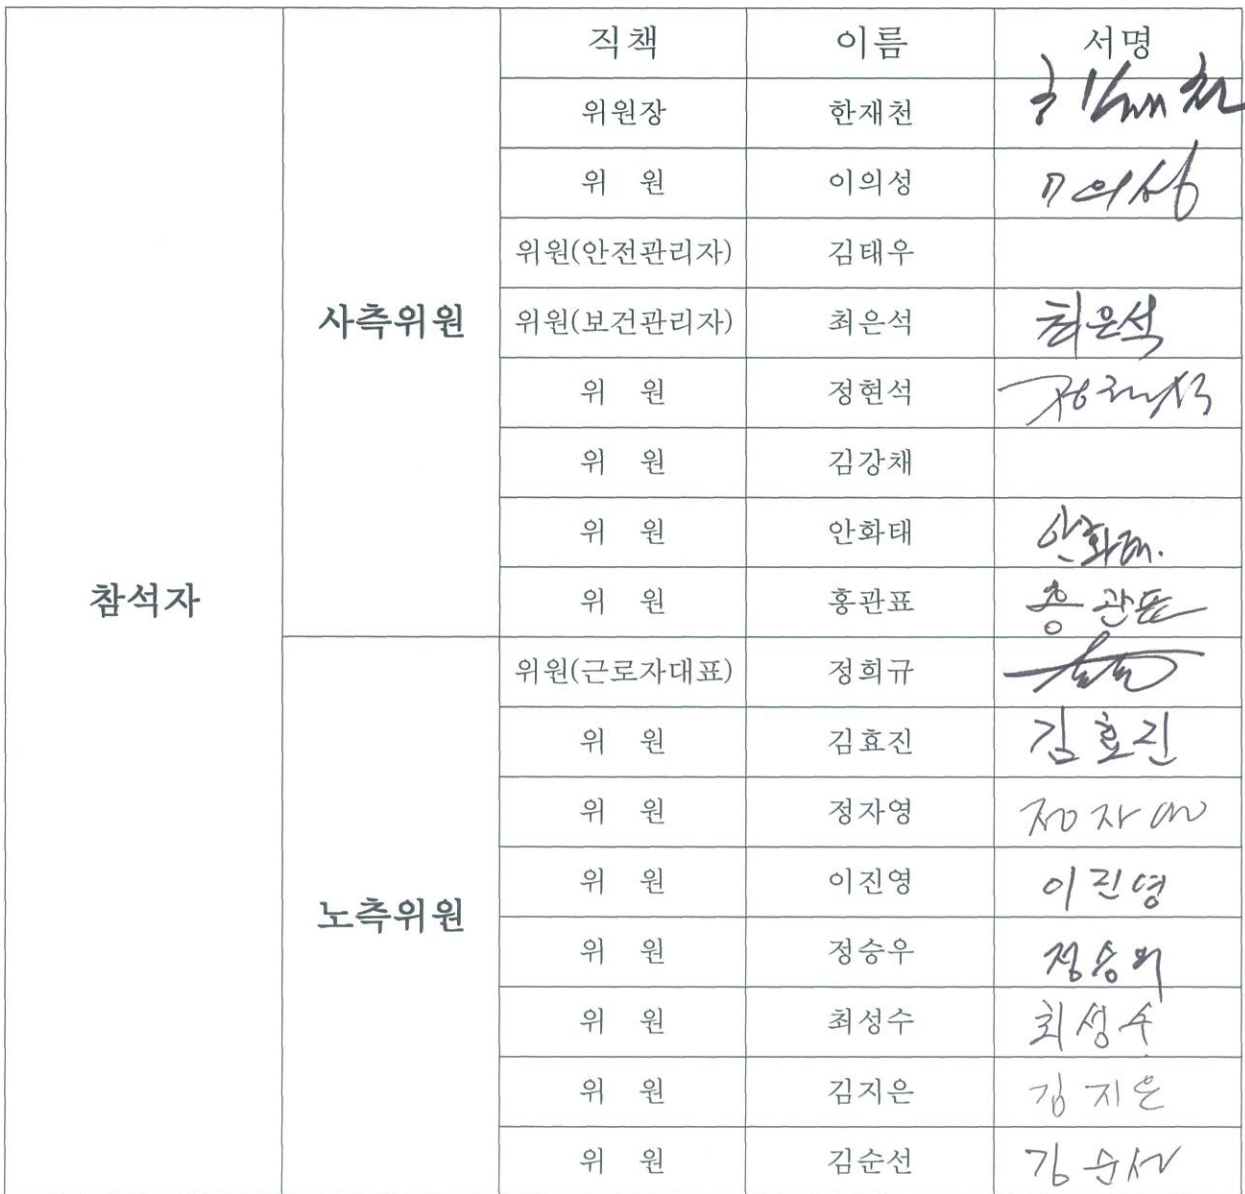 직책 이름 서명
위원장 한재천
위 원 이의성 이의성
위원(안전관리자) 김태우
사측위원 위원(보건관리자) 최은석 최은석
위 원 정현석 정현석
위 원 김강채
위 원 안화태 안화태.
참석자 위 원 홍관표 홍관표
위원(근로자대표) 정희규
위 원 김효진 김효진
위 원 정자영 정자영
노측위원 위 원 이진영 이진영
위 원 정승우 정승우
위 원 최성수 최성수
위 원 김지은 김지은
위 원 김순선 김순선